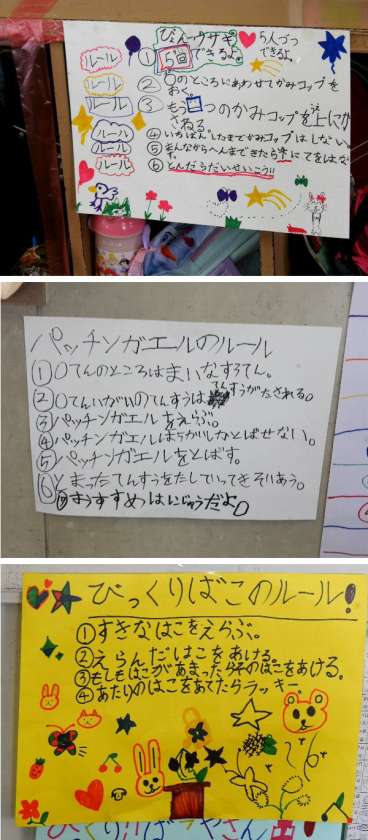 ぴょんウサギ
5人づつ
できるよ。
ルール
ルール
ルール
ルール
ルール
ルール
① 5回できるよ。
② 〇のところにあわせてかみコップを
おく。
③ もう1つのかみコップを上にか
さねる
④ いちばんしたまでかみコップはしない。
⑥ とんだらだいせいこう!!
パッチンガエルのルール
① 0てんのところはまいなすうてん。
② 0てんいがいのてんすうは
てんすうがたされる。
③ パッチンガエルをえらぶ。
④ パッチンガエルは1かいしかとばせない。
⑤ パッチンガエルをとばす。
⑥ とまったてんすうをたしていってきそいあう。
びっくりばこのルール!
① すきなはこをえらぶ。
② えらんだはこをあける。
③ もしもはこがあまったらそのはこをあける。
④ あたりのはこをあてたらラッキー。